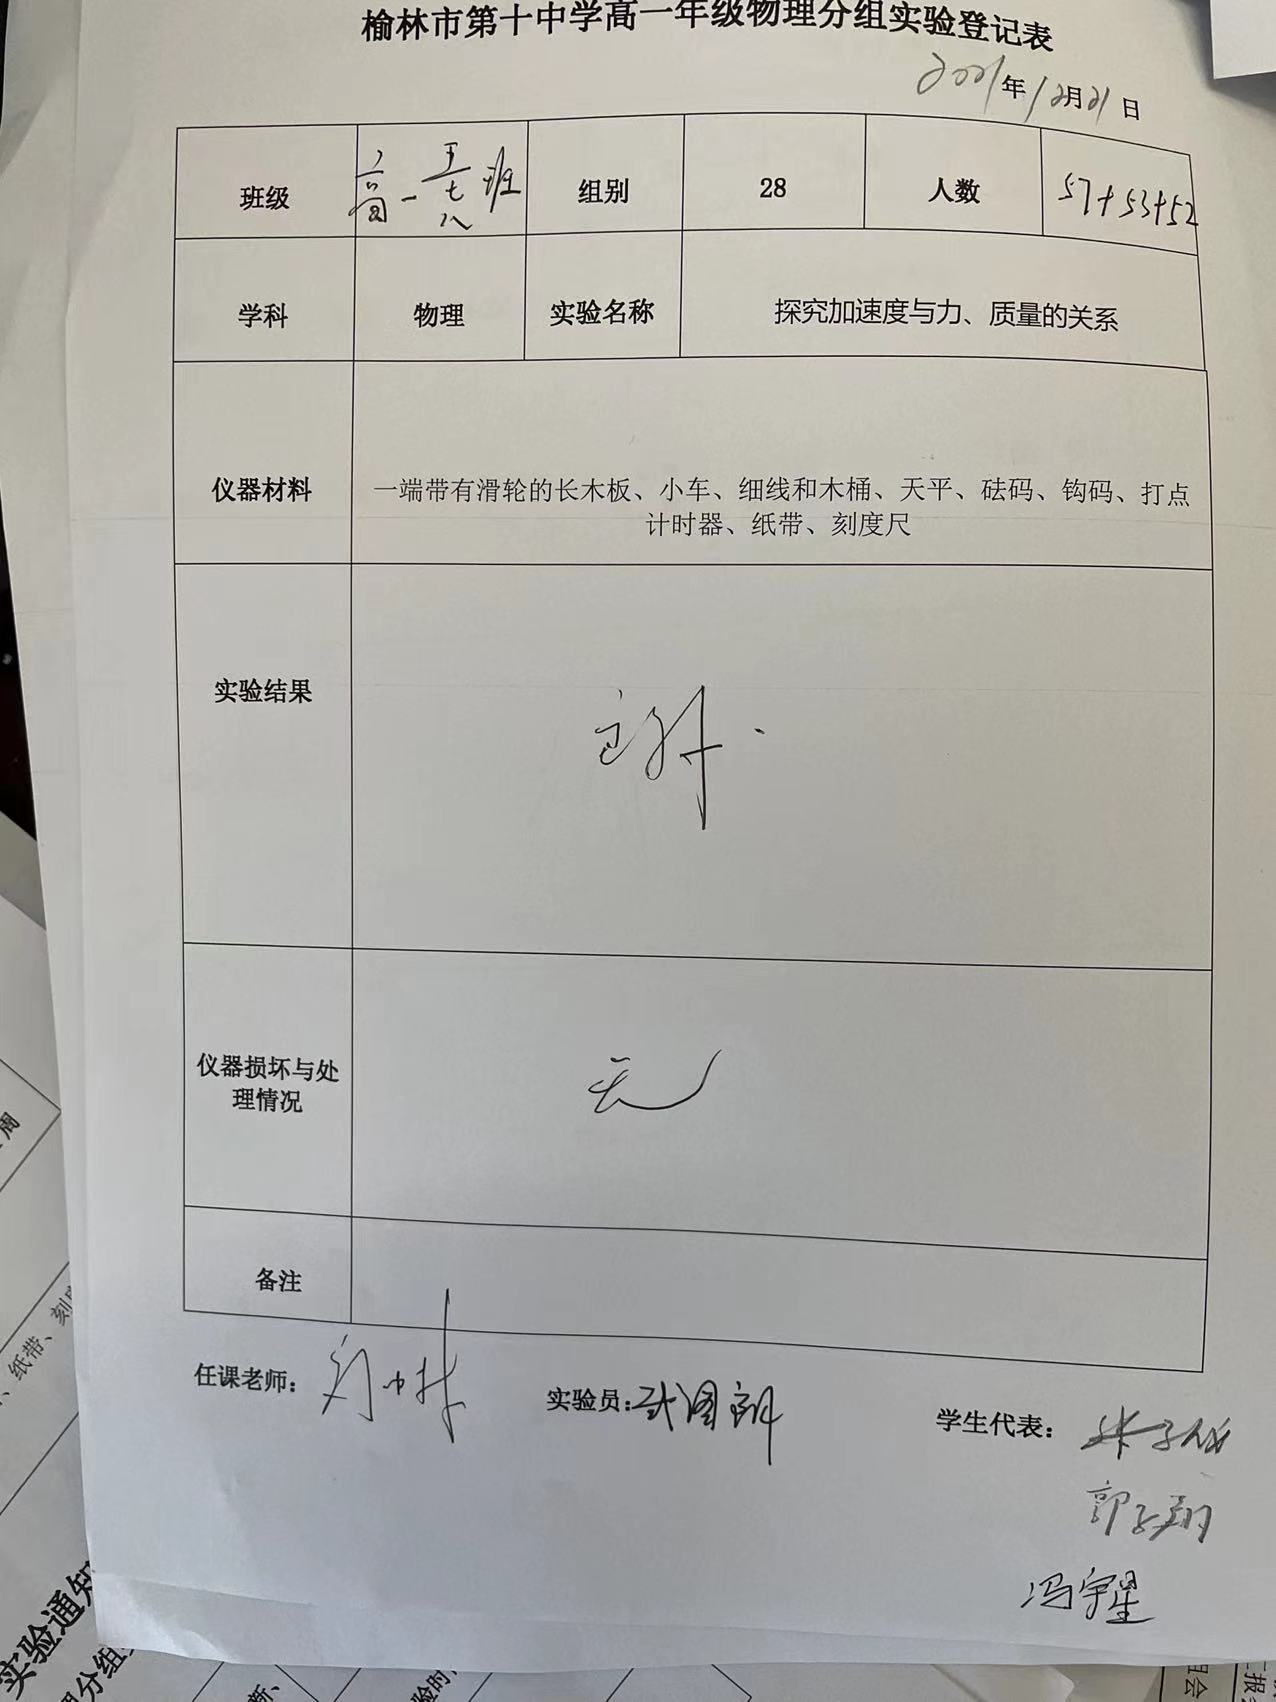 榆林市第十中学高一年级物理分组实验登记表
2021年12月21日
班级 高一五七八班 组别 28 人数 57+53+52
学科 物理 实验名称 探究加速度与力、质量的关系
仪器材料 一端带有滑轮的长木板、小车、细线和木桶、天平、砝码、钩码、打点
计时器、纸带、刻度尺
实验结果
仪器损坏与处
理情况
无
备注
任课老师：
实验员：
学生代表：
郭子翔
冯宇星
、纸带、刻
实验通知
理分组